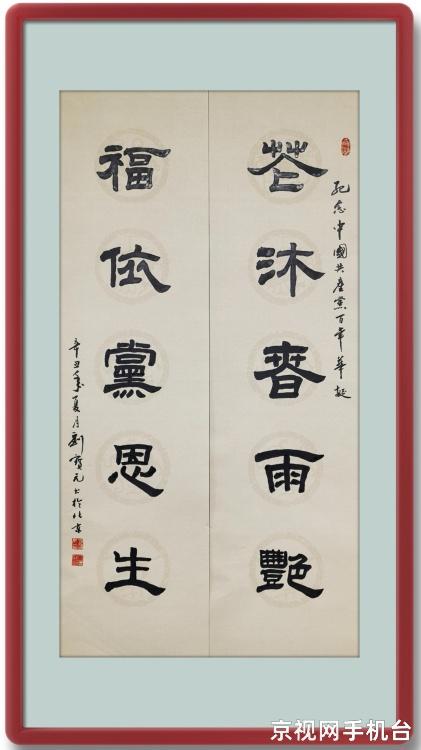 紀念中國共產黨百年華誕
花沐春雨艷
福依黨恩生
辛丑歲夏月劉寶元书於北京
京视网手机台